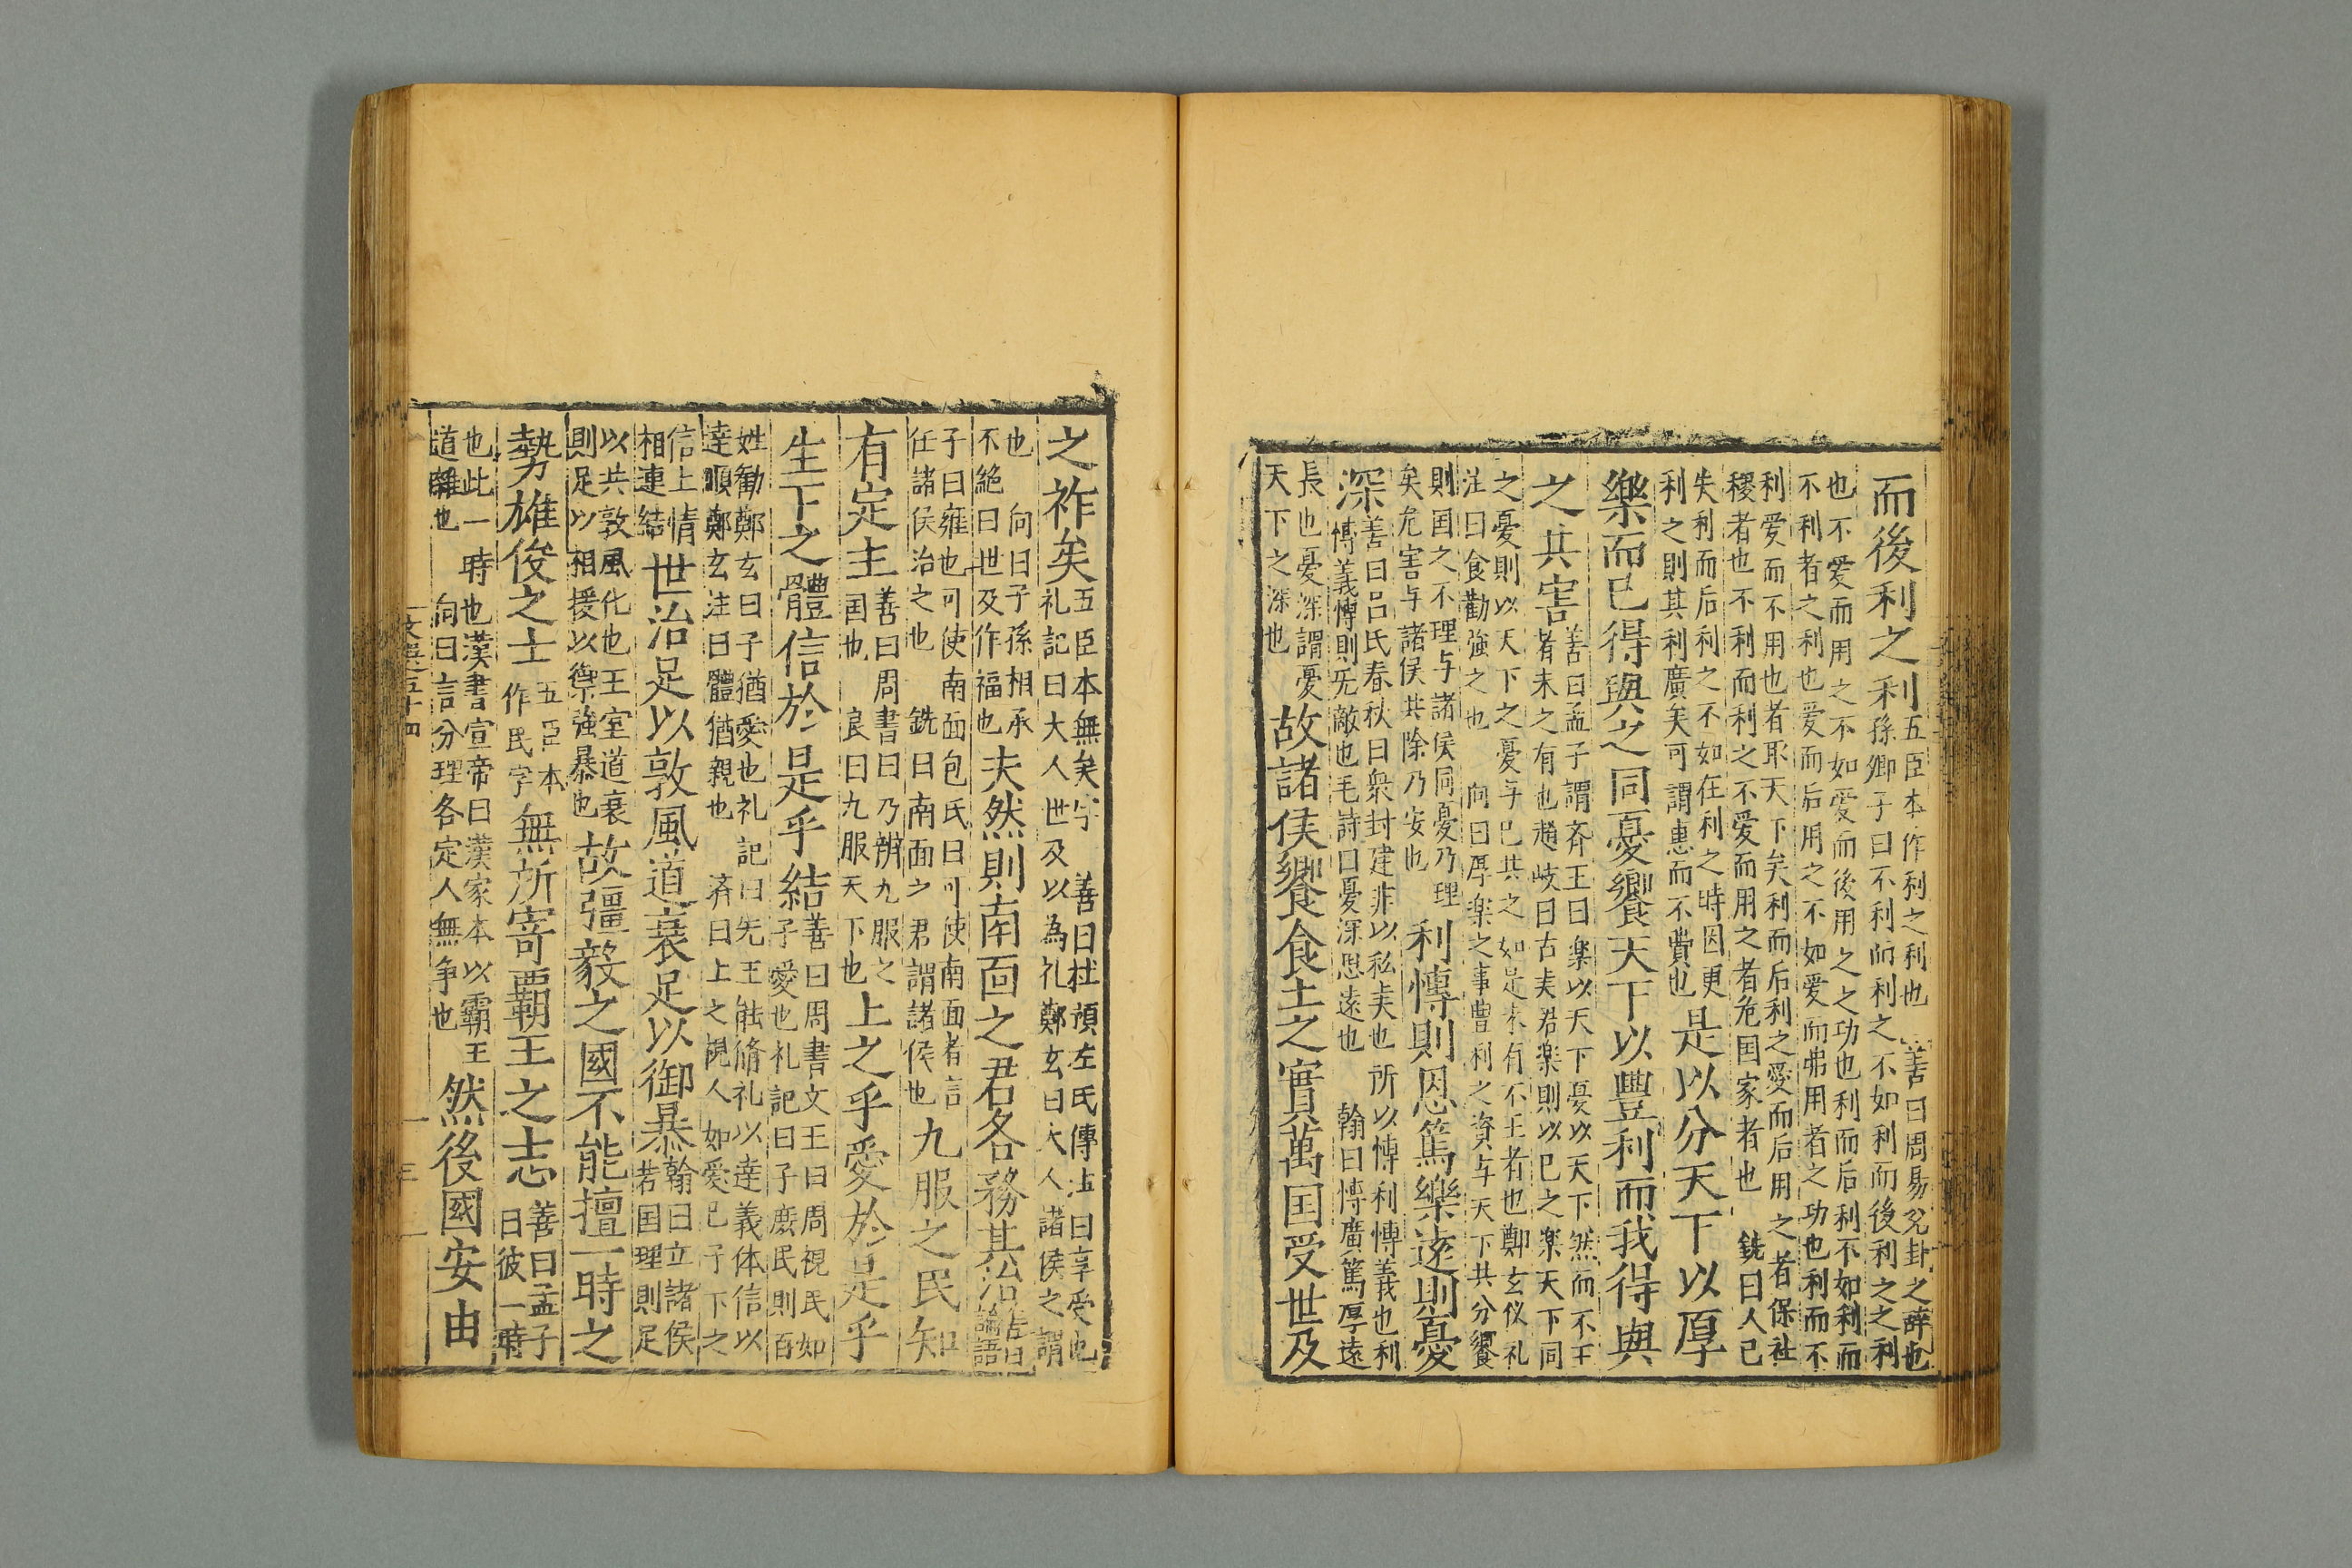 而後利之利五臣本作利之利也 善曰周易兌卦之辞也孫卿子曰不利而利之不如利而後利之之利
也不愛而用之不如愛而後用之之功也利而后利不如利而不利者之利也愛而后用之不如愛而弗用者之功也利而不
利愛而不用也者取天下矣利而后利之愛而后用之者保社稷者也不利而利之不愛而用之者危国家者也 銑曰人己
失利而后利之不如在利之時因更利之則其利廣矣可謂惠而不費也是以分天下以厚
樂而已得與之同憂饗天下以豐利而我得與
之共害善曰孟子謂斉王曰楽以天下憂以天下然而不王者未之有也趙岐曰古夫君楽則以己之楽天下同
之憂則以天下之憂与己共之如是未有不王者也鄭玄仪礼注曰食勸強之也 向曰厚楽之事豊利之資与天下共分饗
則国之不理与諸侯同憂乃理矣危害与諸侯共除乃安也利慱則恩篤樂遠則憂
深善曰吕氏春秋曰衆封建非以私矣也所以慱利慱義也利慱義慱則旡敵也毛詩曰憂深思遠也 翰曰慱廣篤厚遠
長也憂深謂憂天下之深也故諸侯饗食土之實萬国受世及
之祚矣五臣本無矣字 善曰杜預左氏傳注曰享受也礼記曰大人世及以為礼鄭玄曰大人諸侯之謂
也 向曰子孫相承不絶曰世及作福也夫然則南面之君各務其治善曰論語
子曰雍也可使南面包氏曰可使南面者言任諸侯治之也 銑曰南面之君謂諸侯也九服之民知
有定主善曰周書曰乃辨九服之国也 良曰九服天下也上之乎愛於是乎
生下之體信於是乎結善曰周書文王曰周視民如子愛也礼記曰子庶民則百
姓勸鄭玄曰子猶愛也礼記曰先王能脩礼以達義体信以達順鄭玄注曰體猶親也 済曰上之視人如愛己子下之
信上情相連結世治足以敦風道衰足以御暴翰曰立諸侯若国理則足
以共敦風化也王室道衰則足以相援以禦強暴也故彊毅之國不能擅一時之
勢雄俊之士五臣本作民字無所寄覇王之志善曰孟子曰彼一時
也此一時也漢書宣帝曰漢家本以霸王道雜也 向曰言分理各定人無争也然後國安由
文選五十四
三